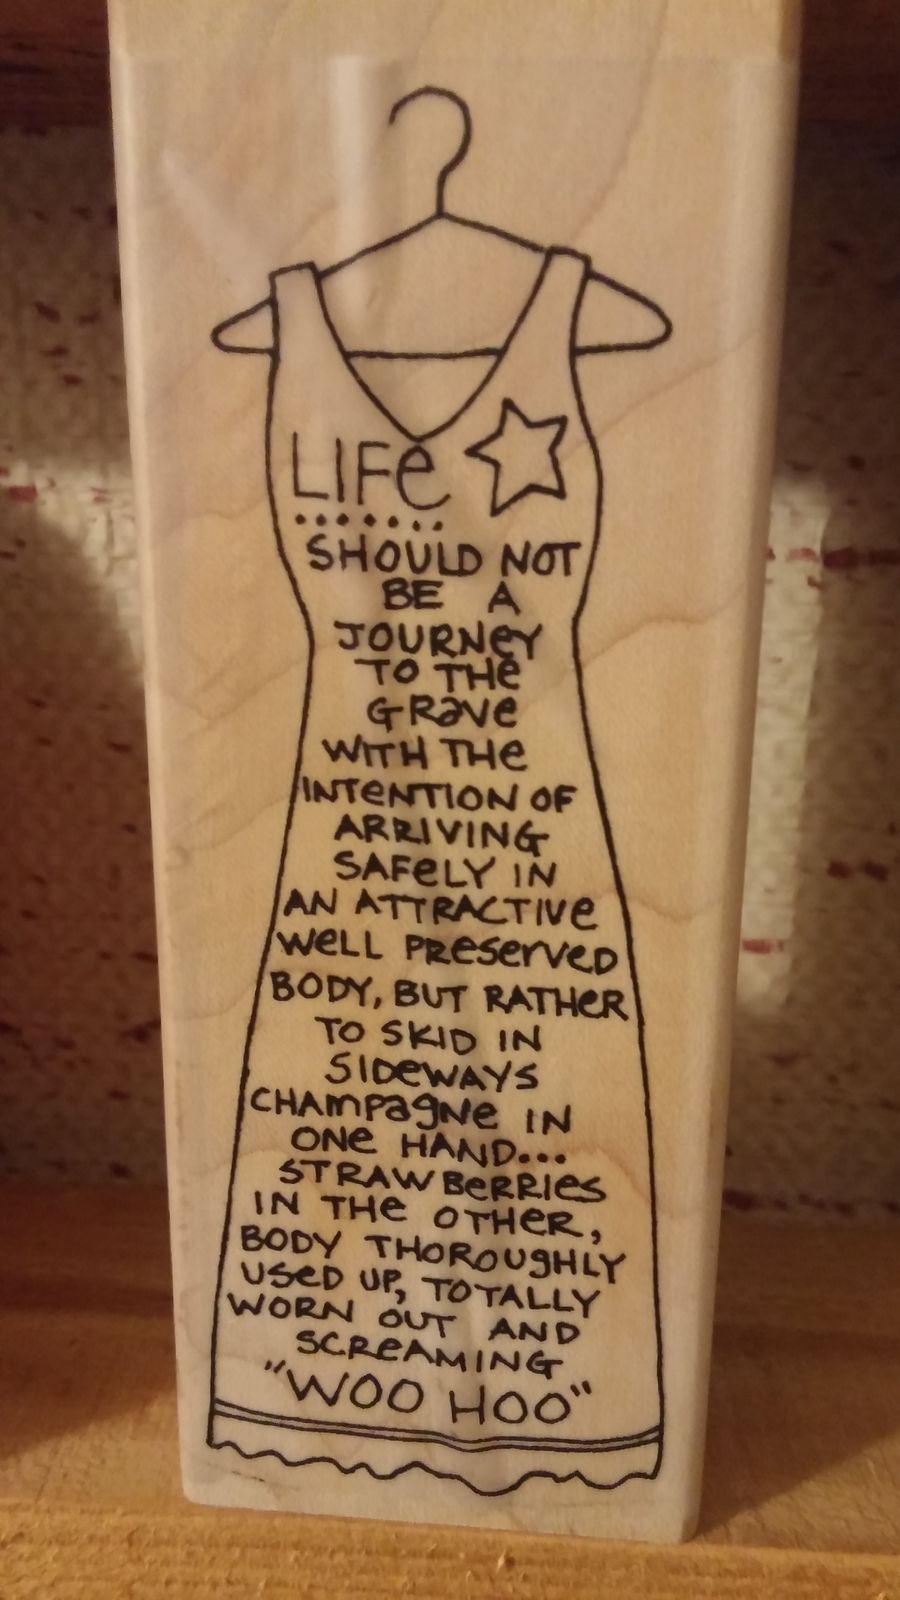 LIFe
SHOULD NOT
BE A
JOURNeY
TO THe
GRave
WITH THe
INTeNTION OF
ARRIVING
SAFeLY IN
AN ATTRACTIVe
WeLL PReSeRVeD
BODY, BUT RATHeR
TO SKID IN
SIDeWAYS
CHAmPagNe IN
ONe HAND...
STRAWBeRRIeS
IN THe OTHeR,
BODY THOROUgHLY
USeD UP, TOTALLY
WORN OUT AND
SCReAMING
"WOO HOO"